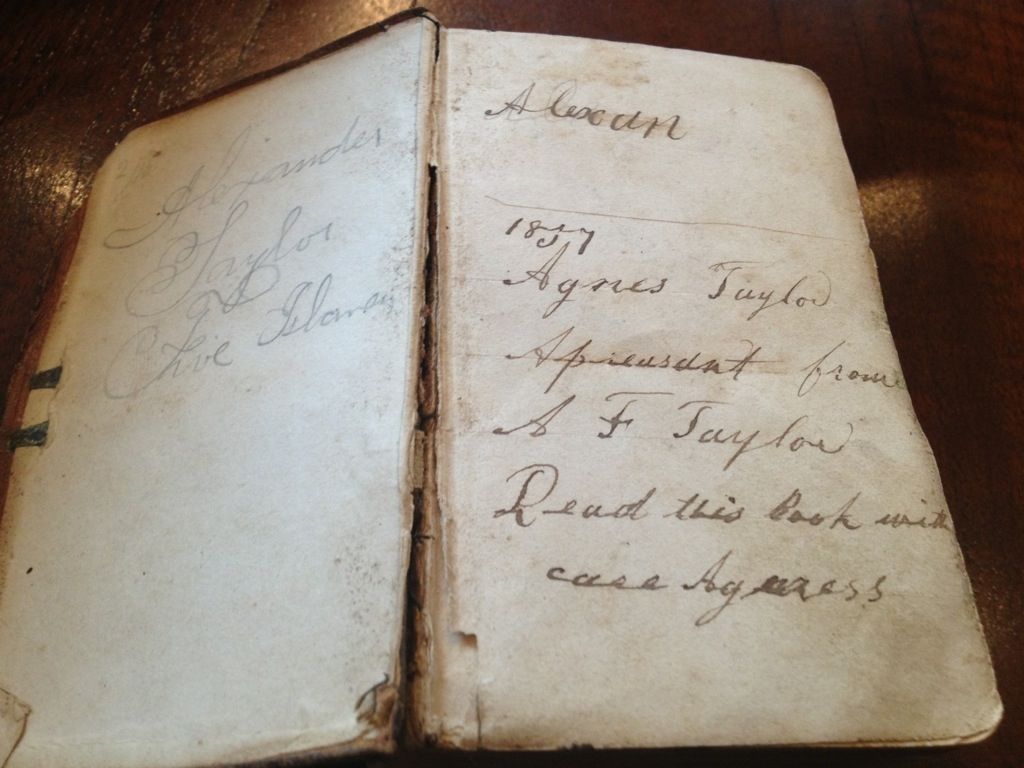 Alexander
Taylor
Clive
Alexan
1857
Agnes Taylor
Apreasant from
A F Taylor
Read this Book with
care Agness